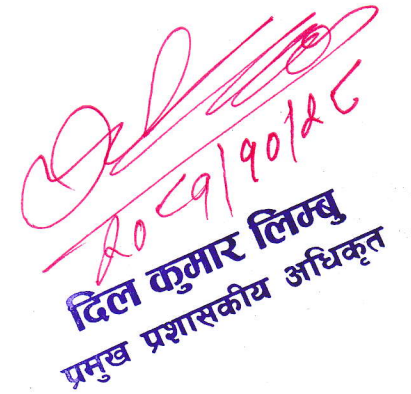 २०८१/१०/२८
दिल कुमार लिम्बु
प्रमुख प्रशासकीय अधिकृत